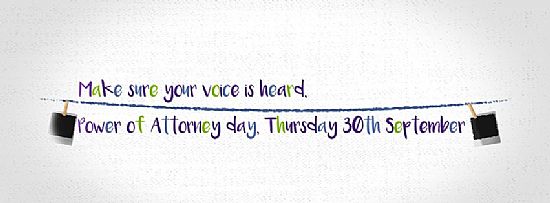 Make sure your voice is heard.
Power of Attorney day, Thursday 30th September